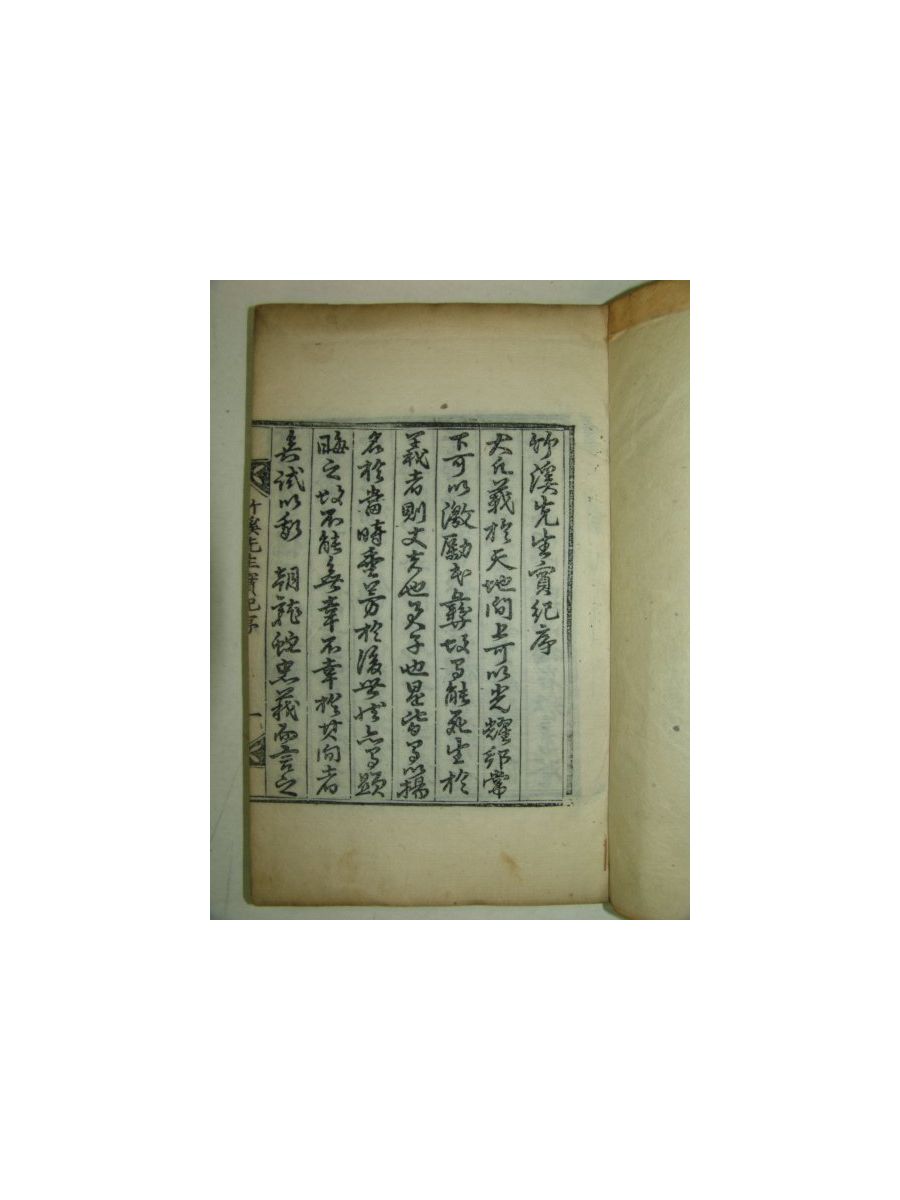 竹溪先生實紀序
大凡義於天地間上可以光耀邦常
下可以激勵民彝故曰能死生於
義者則丈夫也男子也是皆可以揚
名於當時垂芳於後世然亦有顯
晦之故不能無幸不幸於其間者
矣試以我 朝龍蛇忠義而言之
竹溪先生實紀序 一